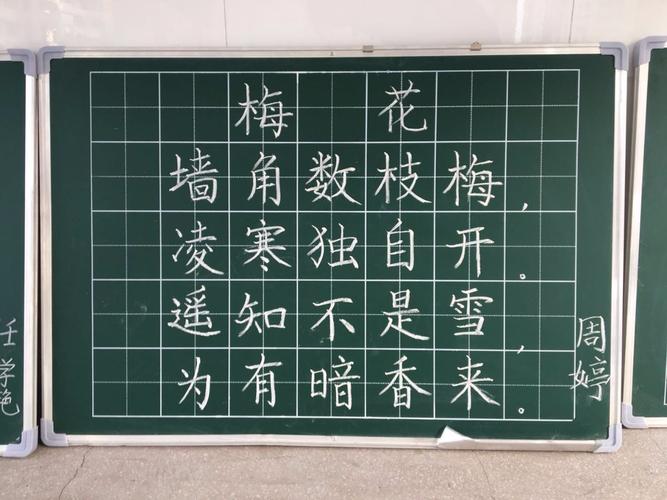 梅花
墙角数枝梅，
凌寒独自开。
遥知不是雪，
为有暗香来。
周婷
任学艳